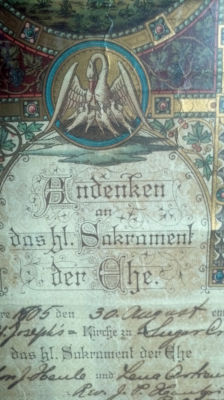 Andenken
an
das hl. Sakrament
der Ehe.
1905 den 30. August
Joseph's = Kirche zu
das hl. Sakrament der Ehe
J. und Lena
Rev. J. P.